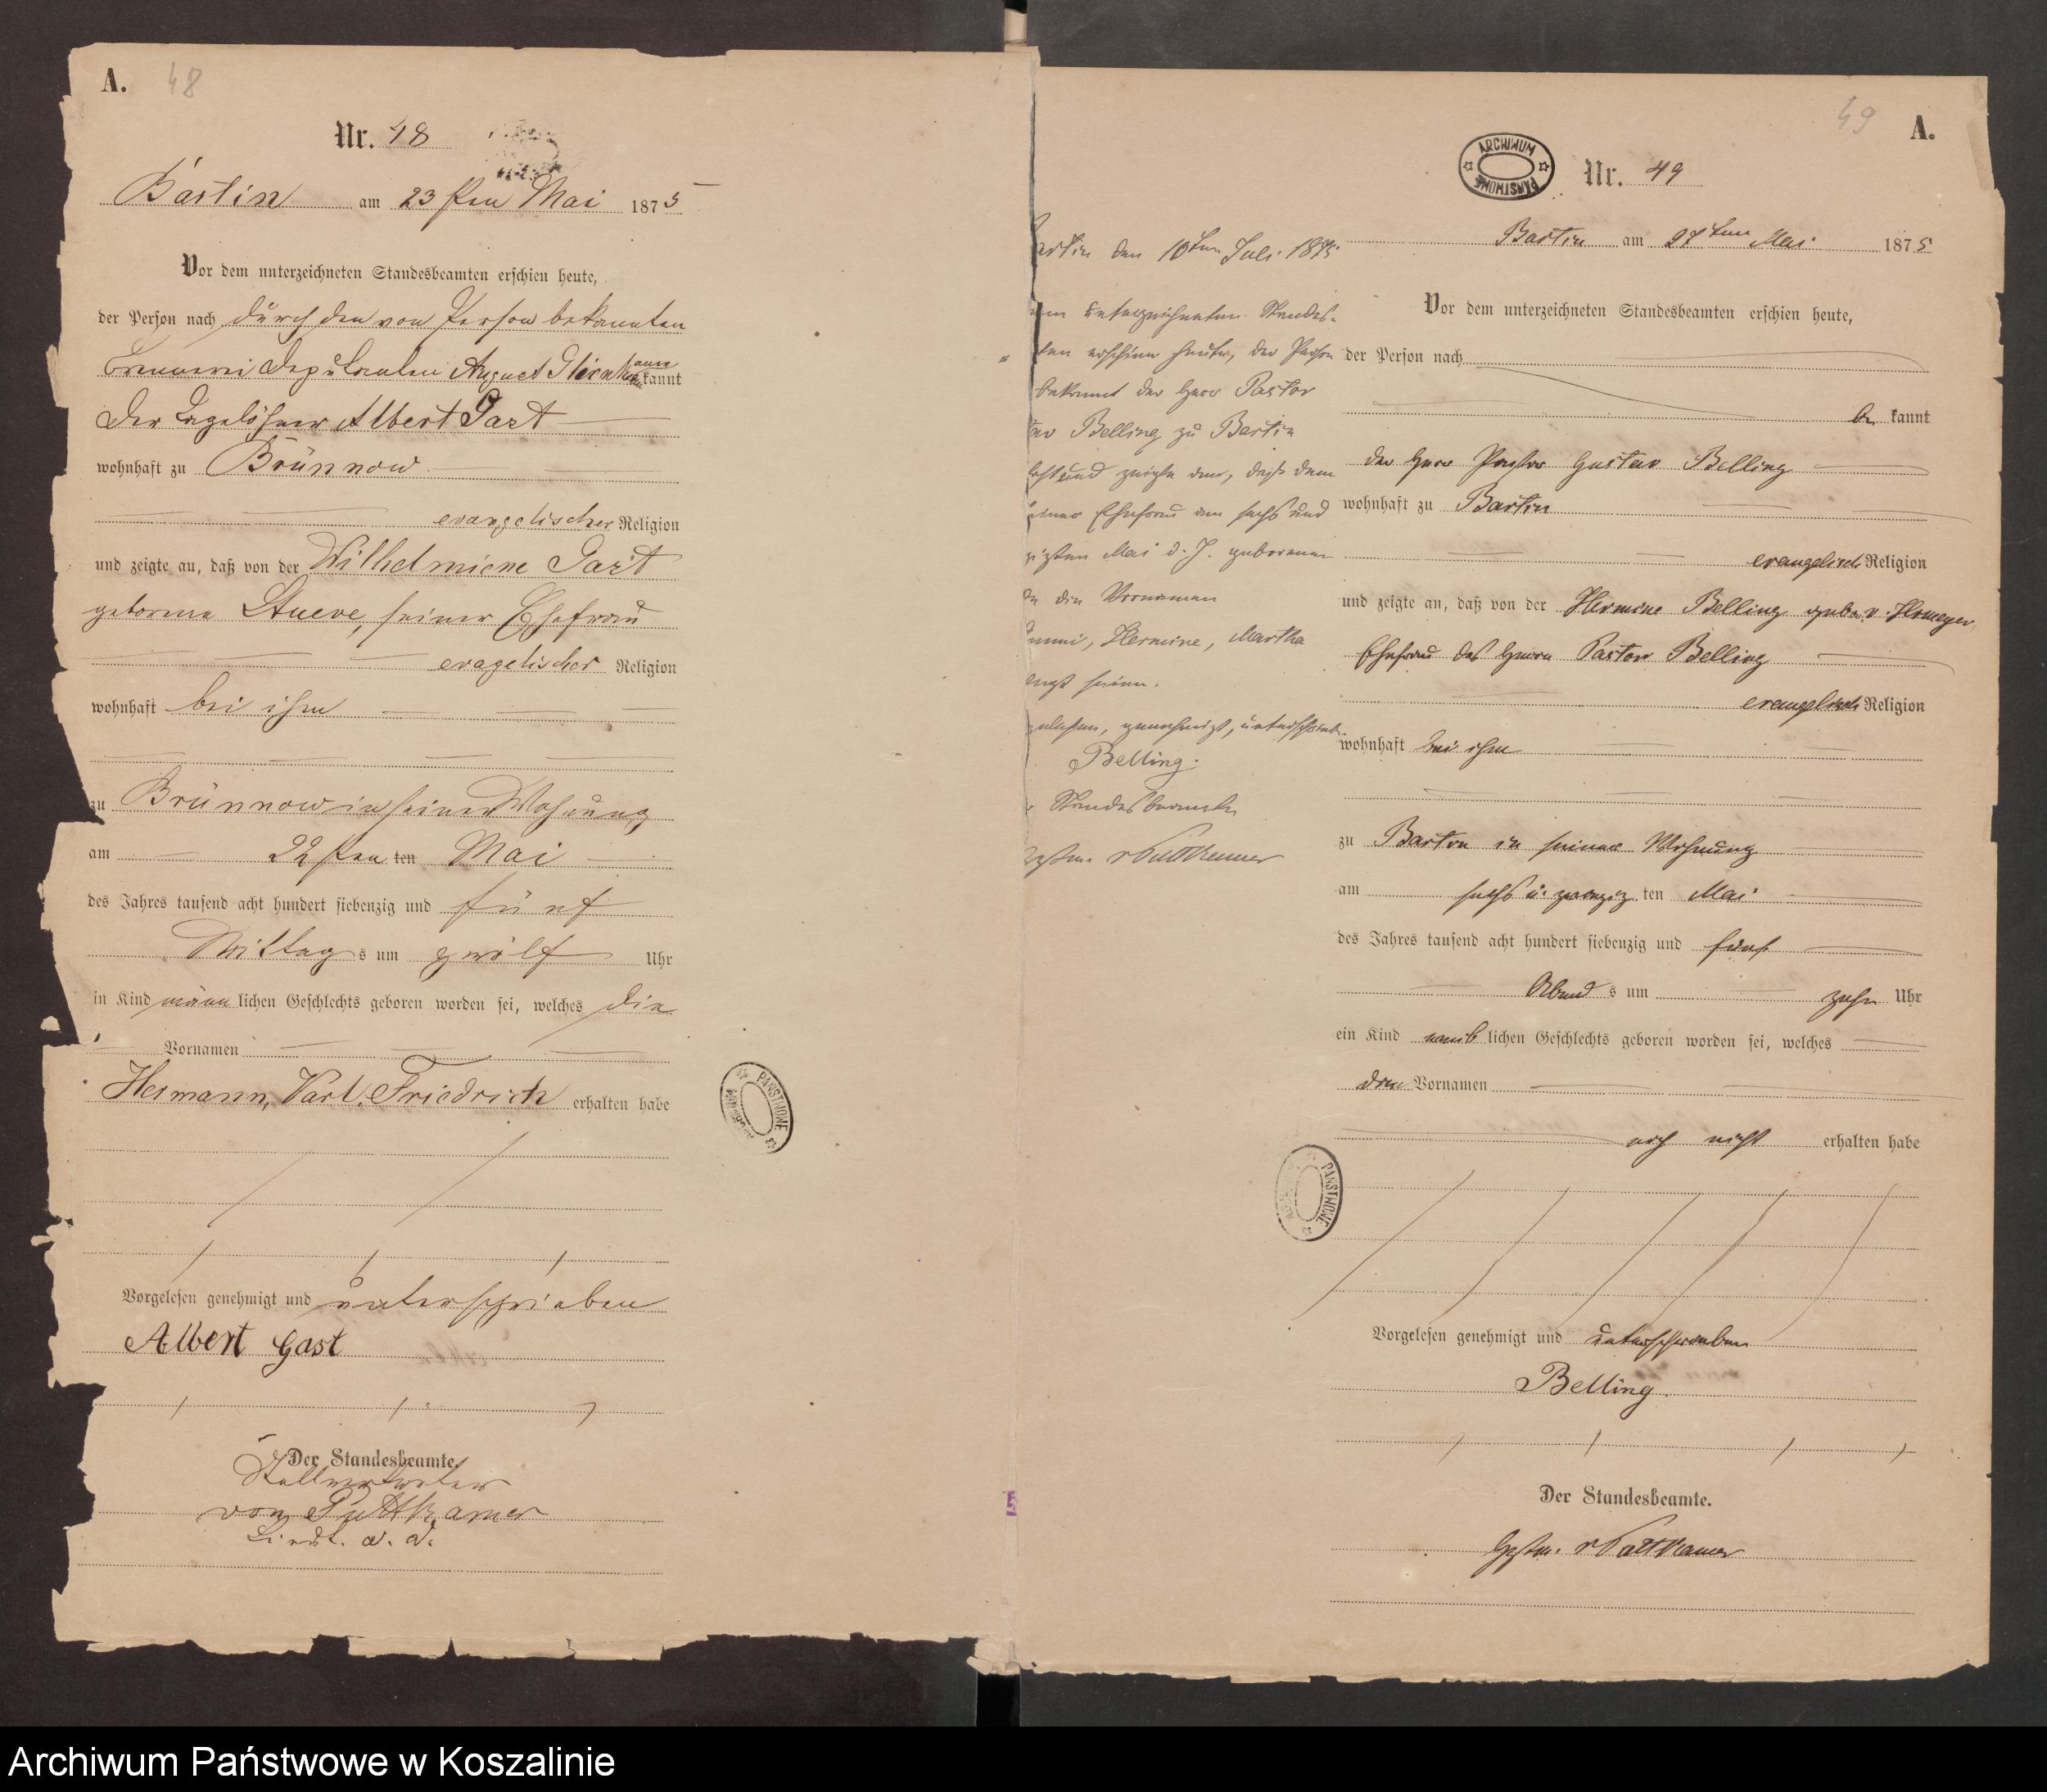 A. 48
Nr. 48
Bartin am 23sten Mai 1875
Vor dem unterzeichneten Standesbeamten erschien heute,
der Person nach durch den von Person bekannten
Brennerei Deputanten August kannt
der Tagelöhner Albert Gast
wohnhaft zu Brünnow
evangelischer Religion
und zeigte an, daß von der Wilhelmiene Gast
geborene Stueve, seiner Ehefrau
evagelischer Religion
wohnhaft bei ihm
zu Brünnow in seiner Wohnung
am 22sten ten Mai
des Jahres tausend acht hundert siebenzig und fünf
Mittags um zwölf Uhr
in Kind männlichen Geschlechts geboren worden sei, welches die
Vornamen
Hermann, Karl, Friedrich erhalten habe
Vorgelesen genehmigt und unterschrieben
Albert Gast
Der Standesbeamte.
Stellvertreter
von Puttkamer
Lieut. a. d.
PAŃSTWOWE
49 A.
ARCHIWUM PAŃSTWOWE
Nr. 49
Bartin am 27ten Mai 1875
Vor dem unterzeichneten Standesbeamten erschien heute,
der Person nach
be kannt
der Herr Pastor Gustav Belling
wohnhaft zu Bartin
evangelisch Religion
und zeigte an, daß von der Hermine Belling geb. v.
Ehefrau des Herrn Pastor Belling
evangelisch Religion
wohnhaft bei ihm
zu Bartin in seiner Wohnung
am sechs u. zwanzigten Mai
des Jahres tausend acht hundert siebenzig und fünf
Abends um zehn Uhr
ein Kind weiblichen Geschlechts geboren worden sei, welches
den Vornamen
noch nicht erhalten habe
Vorgelesen genehmigt und unterschrieben
Belling.
Der Standesbeamte.
v Puttkamer
artin den 10ten Juli 1875
em unterzeichneten Standes-
ten erschien heute, der Person
bekannt der Herr Pastor
av Belling zu Bartin
und zeigte an, daß dem
seiner Ehefrau am sechs und
zigsten Mai d. J. geborenen
de die Vornamen
mmi, Hermine, Martha
legt seien.
gelesen, genehmigt, unterschrieb.
Belling.
r Standesbeamte
v Puttkamer
PAŃSTWOWE
Archiwum Państwowe w Koszalinie